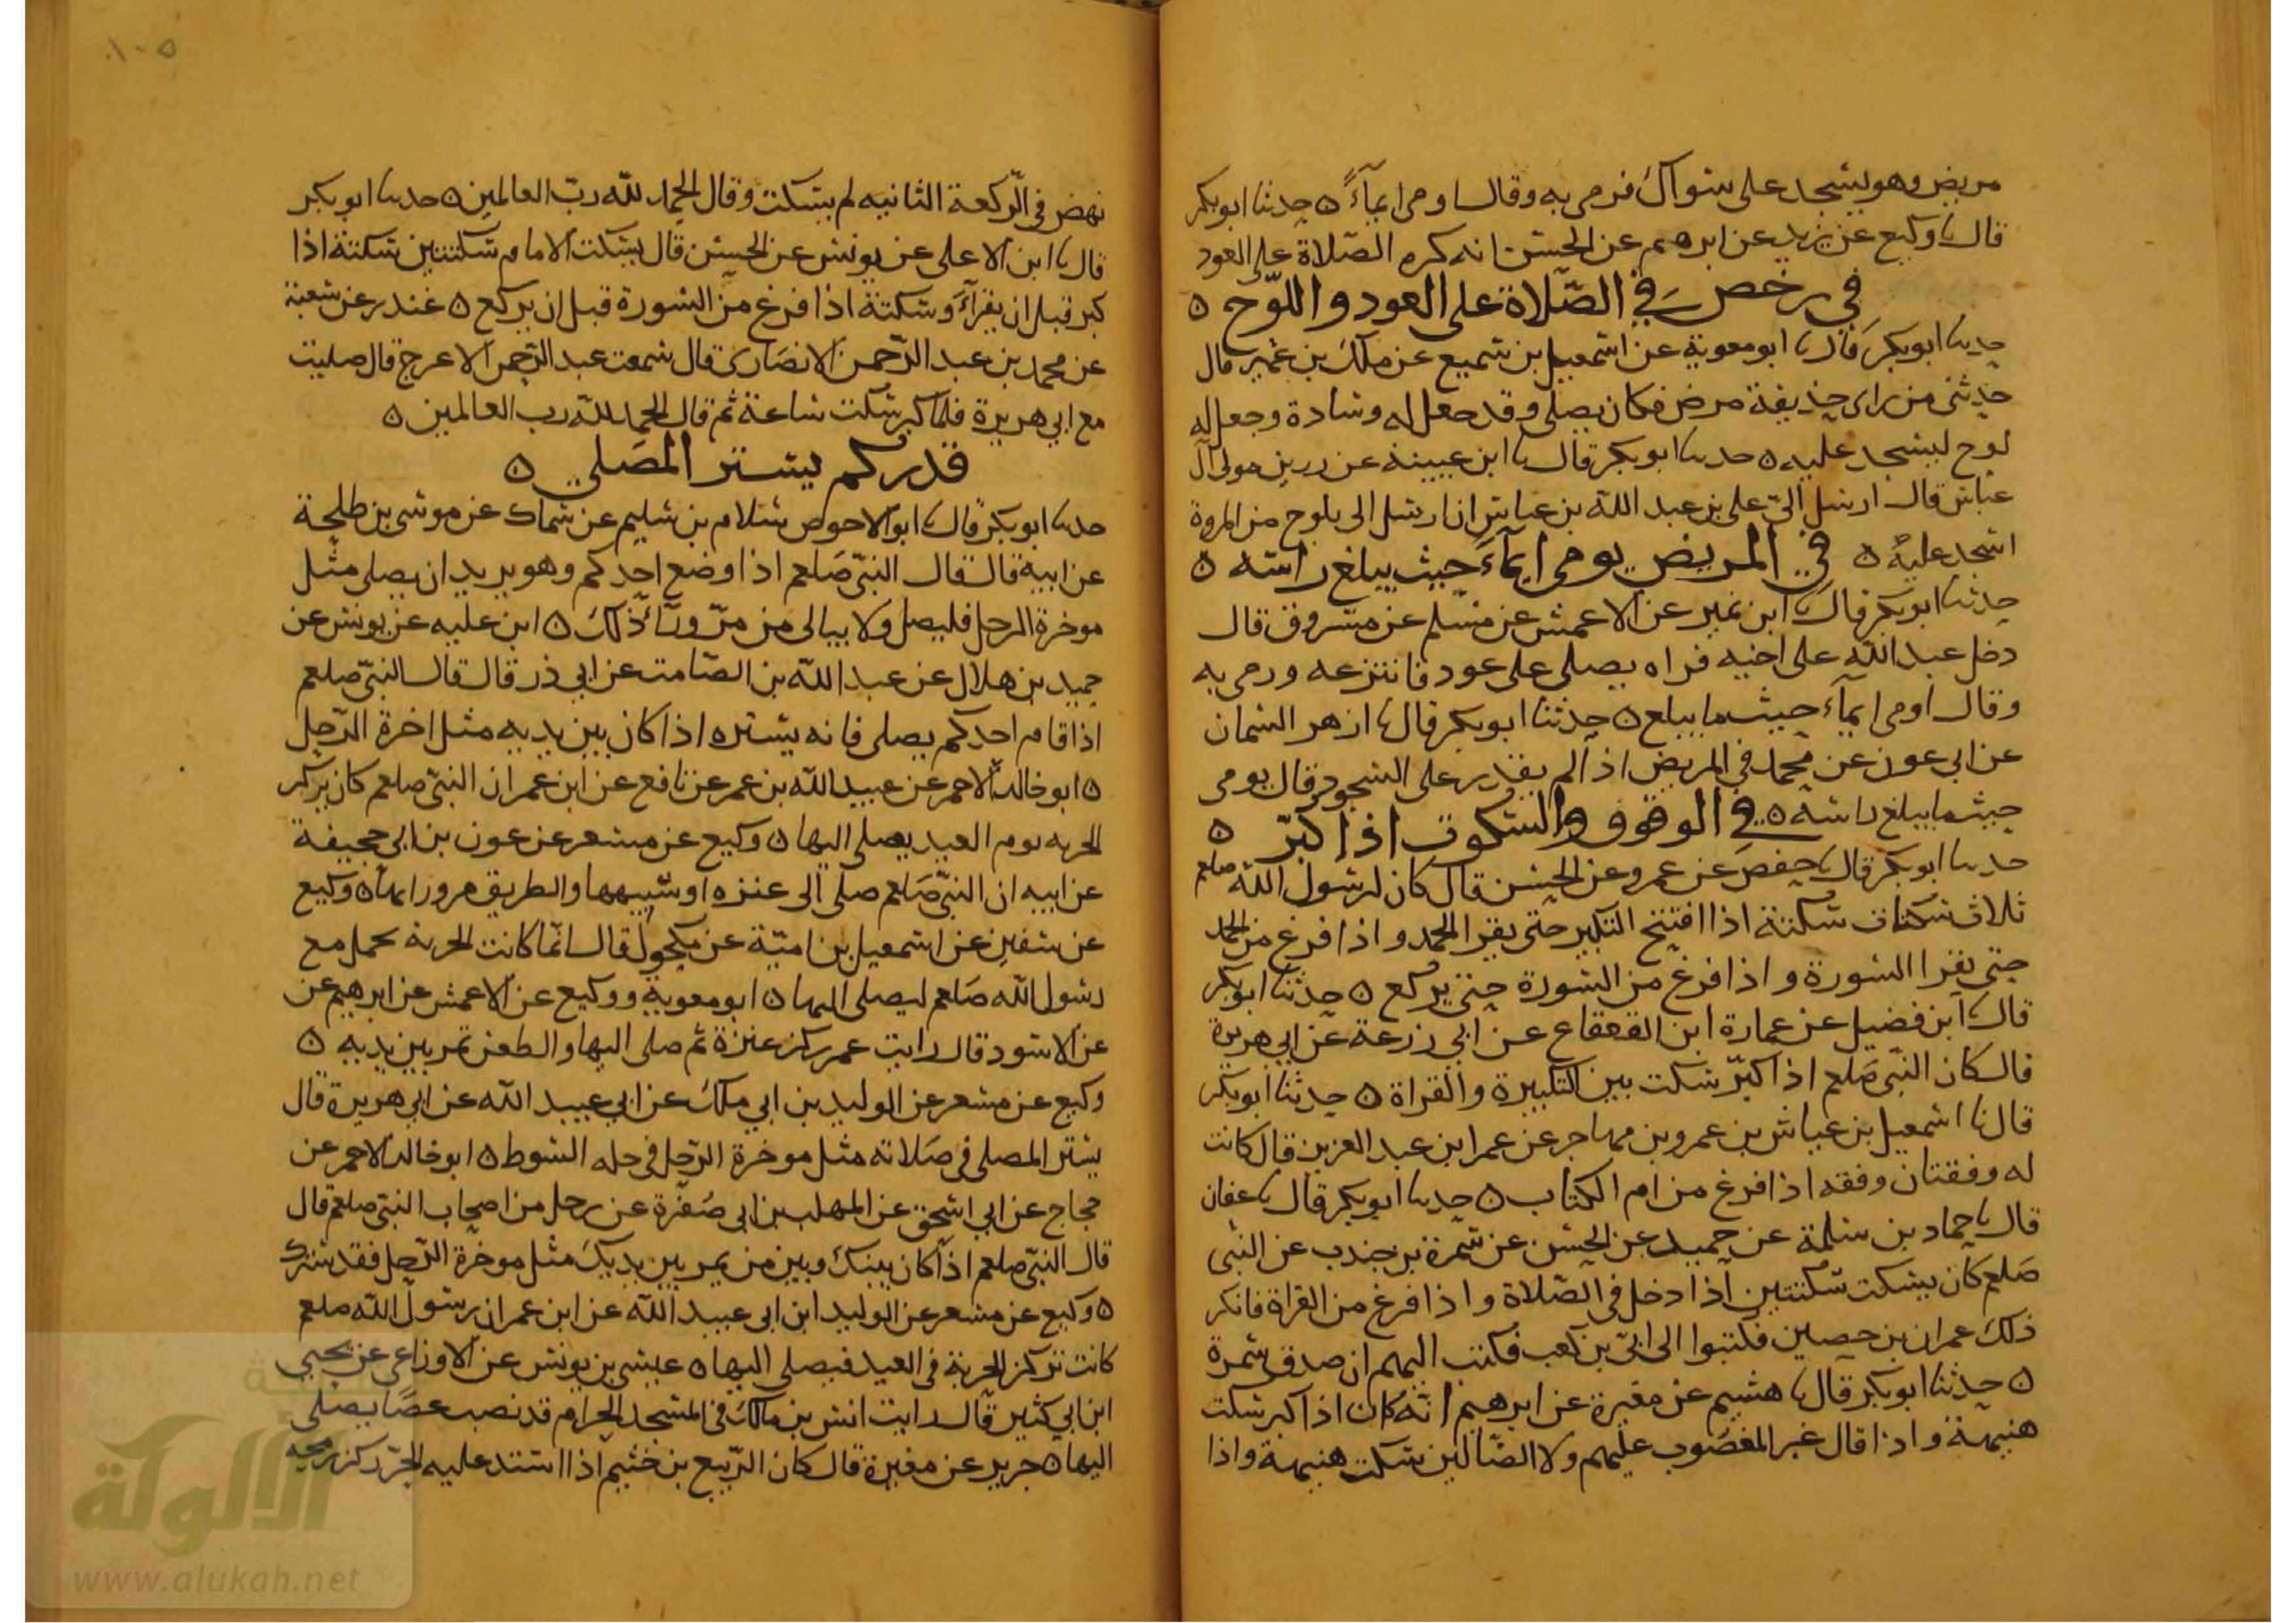 مريض وهو يسجد على سواك فرمى به وقال اومى ايماءً ه حدثنا ابو بكر
قال نا وكيع عن يزيد عن ابرهيم عن الحسن انه كره الصلاة على العود
في رخص في الصلاة على العود واللوح ه
حدثنا ابو بكر قال نا ابو معوية عن اسمعيل بن سميع عن ملك بن عمير قال
حدثنى من راى حذيفة مرض فكان يصلى وقد جعل له وسادة وجعل له
لوح ليسجد عليه ه حدثنا ابو بكر قال نا ابن عيينة عن رزين مولى آل
عباس قال ارسل الىّ على بن عبد الله بن عباس ان ارسل الى بلوح من المروة
اسجد عليه ه في المريض يومى ايماءً حيث يبلغ راسه ه
حدثنا ابو بكر قال نا ابن نمير عن الاعمش عن مسلم عن مسروق قال
دخل عبد الله على اخيه فراه يصلى على عود فانتزعه ورمى به
وقال اومى ايماءً حيث ما يبلغ ه حدثنا ابو بكر قال نا ازهر السمان
عن ابي عون عن محمد في المريض اذا لم يقدر على السجود قال يومى
حيث ما يبلغ راسه ه في الوقوف والسكوت اذا كبّر ه
حدثنا ابو بكر قال نا حفص عن عمرو عن الحسن قال كان لرسول الله صلعم
ثلاث سكتات سكتة اذا افتتح التكبير حتى يقرا الحمد واذا فرغ من الحمد
حتى يقرا السورة واذا فرغ من السورة حتى يركع ه حدثنا ابو بكر
قال نا ابن فضيل عن عمارة ابن القعقاع عن ابي زرعة عن ابي هريرة
قال كان النبى صلعم اذا كبّر سكت بين التكبيرة والقراة ه حدثنا ابو بكر
قال نا اسمعيل بن عياش بن عمرو بن مهاجر عن عمر ابن عبد العزيز قال كانت
له وقفتان وقفه اذا فرغ من ام الكتاب ه حدثنا ابو بكر قال نا عفان
قال نا حماد بن سلمة عن حميد عن الحسن عن سمرة بن جندب عن النبى
صلعم كان يسكت سكتتين اذا دخل في الصلاة واذا فرغ من القراة فانكر
ذلك عمران بن حصين فكتبوا الى ابىّ بن كعب فكتب اليهم ان صدق سمرة
ه حدثنا ابو بكر قال نا هشيم عن مغيرة عن ابرهيم انّه كان اذا كبر سكت
هنيهة واذا قال غير المغضوب عليهم ولا الضالين سكت هنيهة واذا
١٠٥
نهض في الركعة الثانيه لم يسكت وقال الحمد لله رب العالمين ه حدثنا ابو بكر
قال نا ابن الاعلى عن يونس عن الحسن قال يسكت الامام سكتتين سكتة اذا
كبر قبل ان يقراء وسكتة اذا فرغ من السورة قبل ان يركع ه غندر عن شعبة
عن محمد بن عبد الرحمن الانصارى قال سمعت عبد الرحمن الاعرج قال صليت
مع ابي هريرة فلما كبر سكت ساعة ثم قال الحمد لله رب العالمين ه
قدر كم يستر المصلى ه
حدثنا ابو بكر قال نا ابو الاحوص سلام بن سليم عن سماك عن موسى بن طلحة
عن ابيه قال قال النبى صلعم اذا وضع احدكم وهو يريد ان يصلى مثل
موخرة الرحل فليصل ولا يبالى من مرّ وراء ذلك ه ابن عليه عن يونس عن
حميد بن هلال عن عبد الله بن الصامت عن ابي ذر قال قال النبى صلعم
اذا قام احدكم يصلى فانه يستره اذا كان بين يديه مثل اخرة الرحل
ه ابو خالد الاحمر عن عبيد الله بن عمر عن نافع عن ابن عمر ان النبى صلعم كان يركز
الحربه يوم العيد يصلى اليها ه وكيع عن مسعر عن عون بن ابي جحيفة
عن ابيه ان النبى صلعم صلى الى عنزه او شبهها والطريق من ورايها ه وكيع
عن سفين عن اسمعيل بن امية عن مكحول قال انما كانت الحربة تحمل مع
رسول الله صلعم ليصلى اليها ه ابو معوية ووكيع عن الاعمش عن ابرهيم عن
عن الاسود قال رايت عمر ركز عنزة ثم صلى اليها والظعن تمر بين يديه ه
وكيع عن مسعر عن الوليد بن ابي ملك عن ابي عبيد الله عن ابي هريرة قال
يستر المصلى في صلاته مثل موخرة الرحل في حله السوط ه ابو خالد الاحمر عن
حجاج عن ابي اسحق عن المهلب بن ابي صفرة عن رجل من اصحاب النبى صلعم قال
قال النبى صلعم اذا كان بينك وبين من يمر بين يديك مثل موخرة الرحل فقد سترك
ه وكيع عن مسعر عن الوليد ابن ابي عبيد الله عن ابن عمر ان رسول الله صلعم
كانت تركز الحربة في العيد فيصلى اليها ه عيسى بن يونس عن الاوزاعى عن يحيى
ابن ابي كثير قال رايت انس بن مالك في المسجد الحرام قد نصب عصًا يصلى
اليها ه جرير عن مغيرة قال كان الربيع بن خثيم اذا استند عليه الحرّ ركز رمحه
الألوكة
www.alukah.net